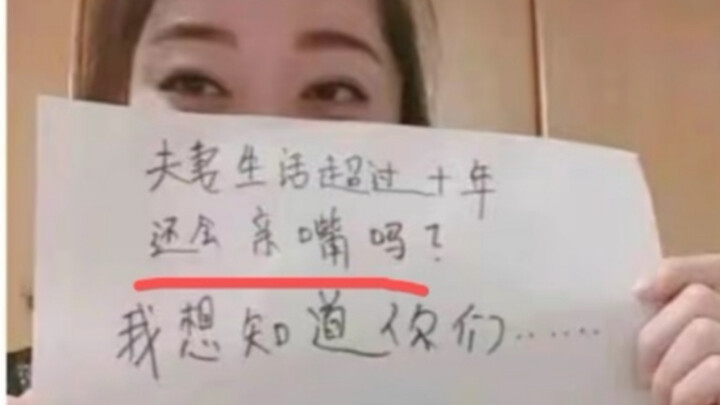 夫妻生活超过十年
还会亲嘴吗?
我想知道你们......